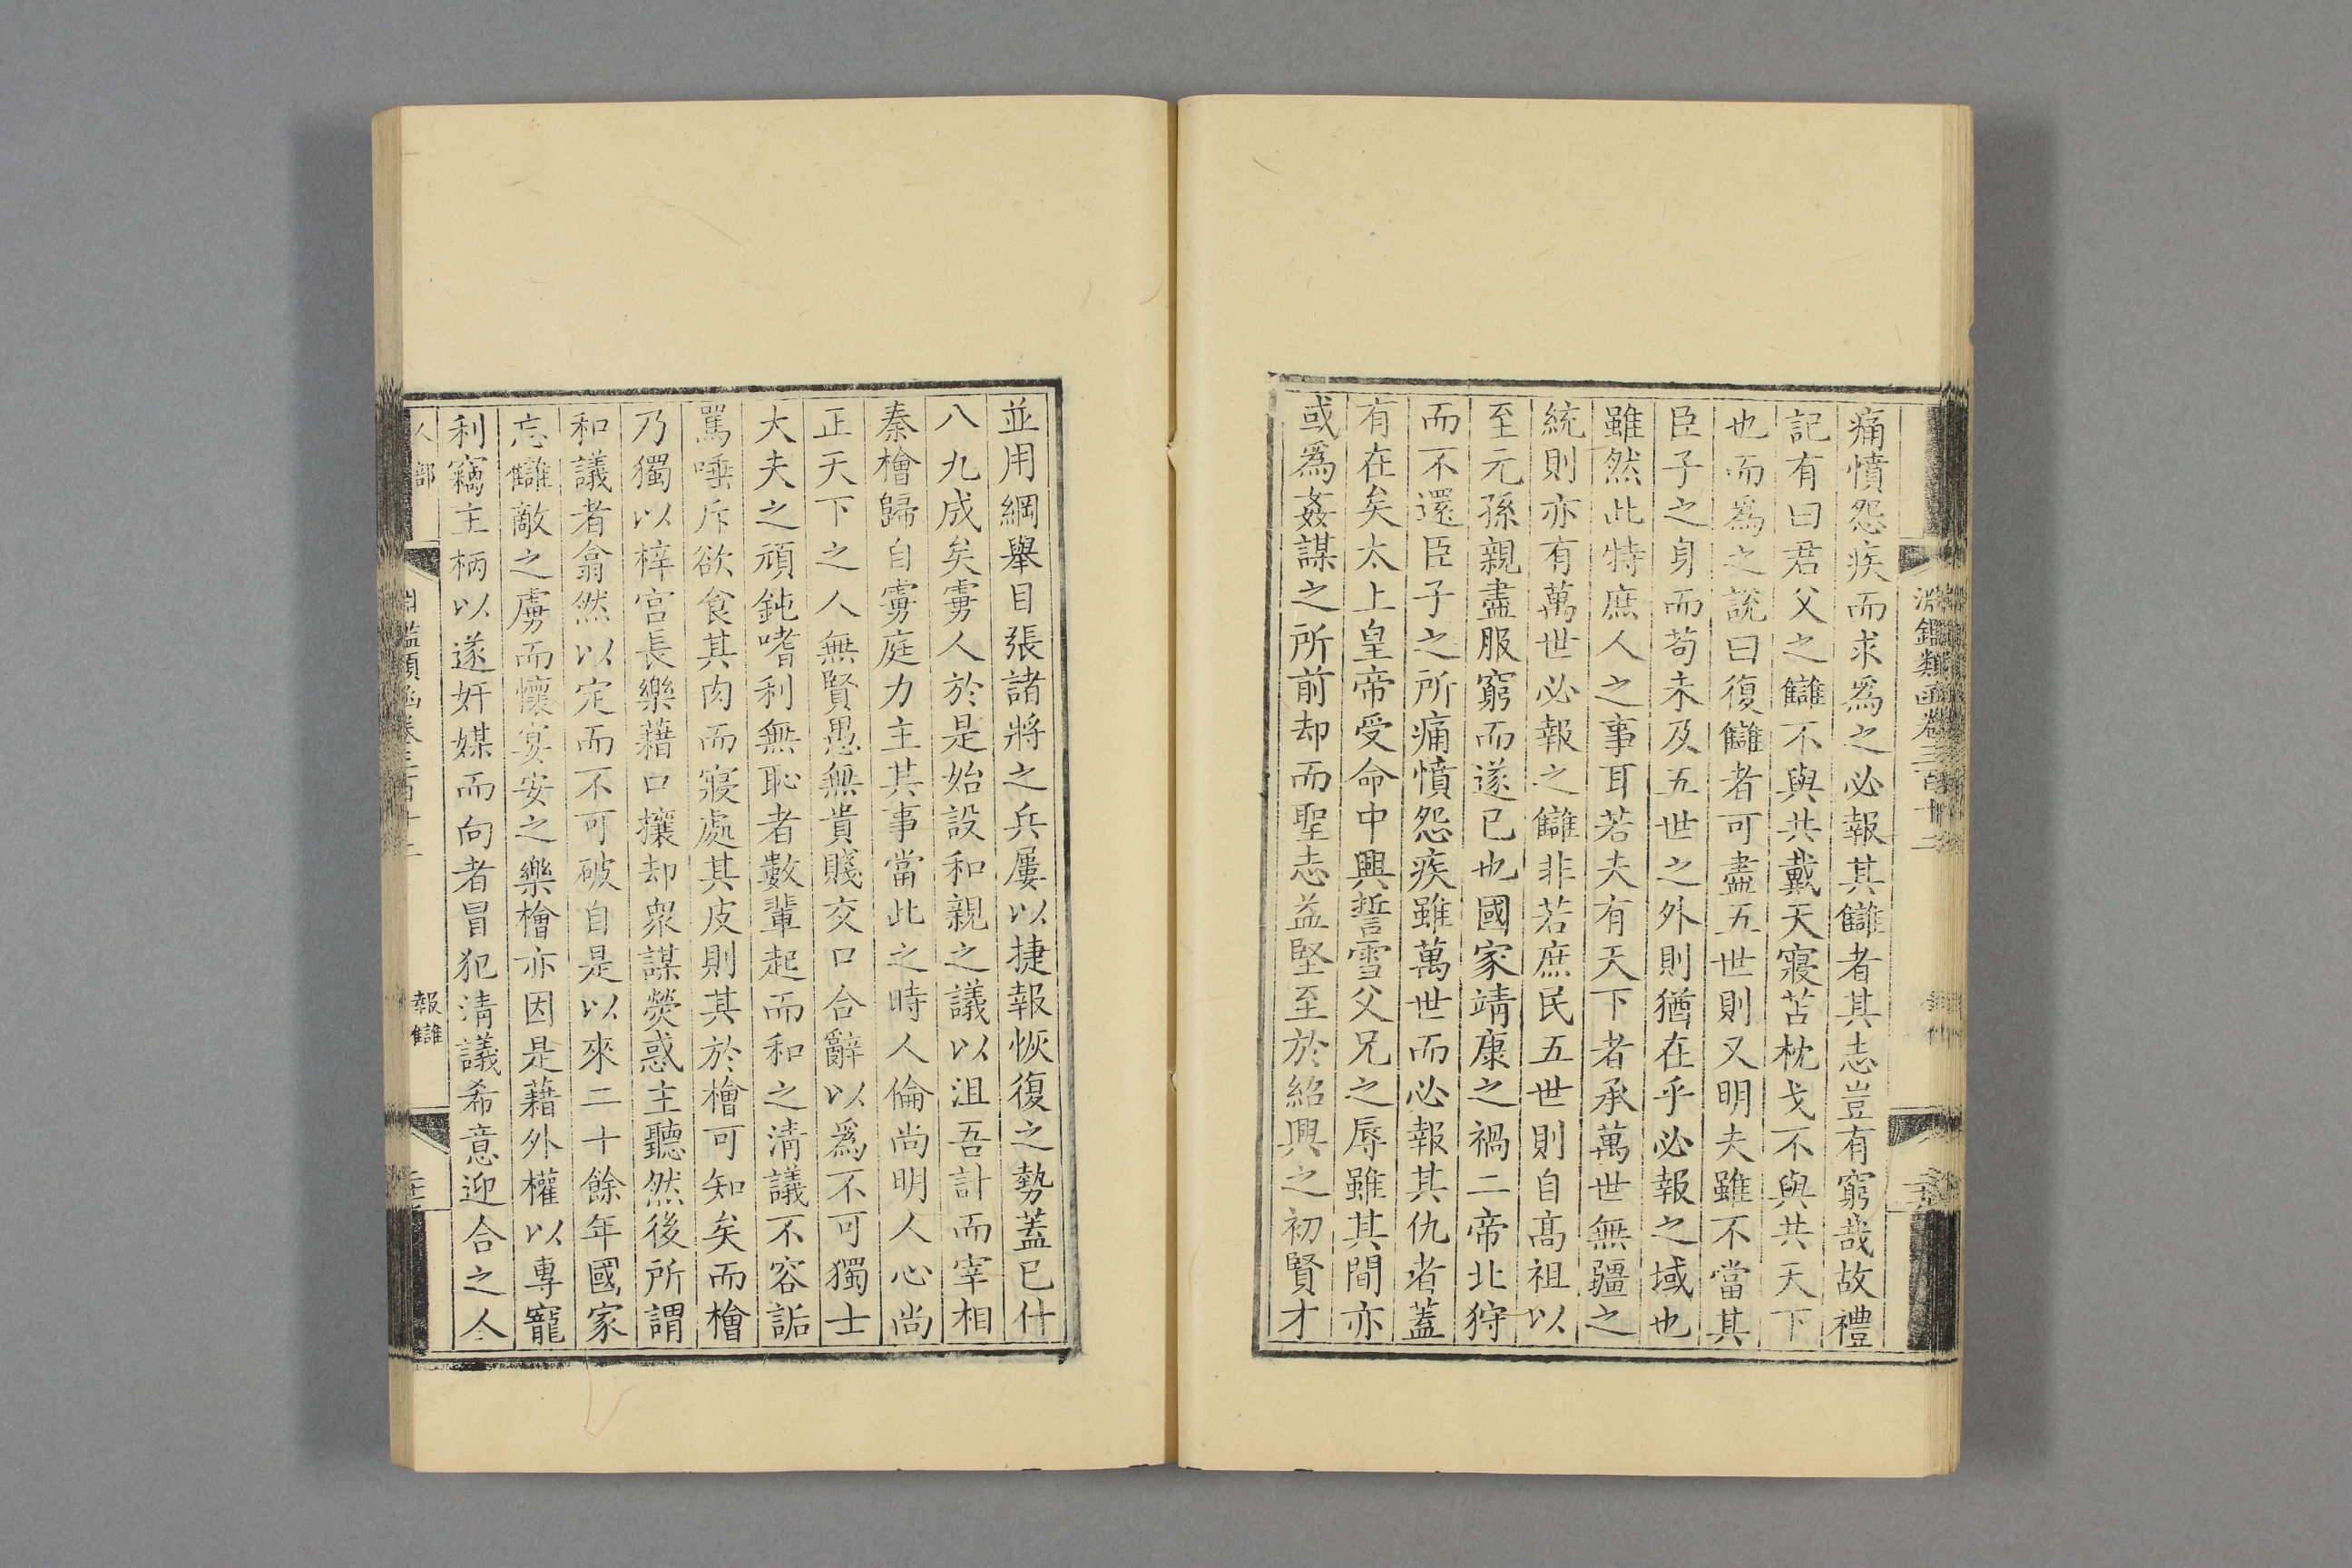 淵鑑類函卷三百十二
痛憤怨疾而求爲之必報其讎者其志豈有窮哉故禮
記有曰君父之讎不與共戴天寢苫枕戈不與共天下
也而爲之説曰復讎者可盡五世則又明夫雖不當其
臣子之身而苟未及五世之外則猶在乎必報之域也
雖然此特庶人之事耳若夫有天下者承萬世無疆之
統則亦有萬世必報之讎非若庶民五世則自髙祖以
至元孫親盡服窮而遂已也國家靖康之禍二帝北狩
而不還臣子之所痛憤怨疾雖萬世而必報其仇者蓋
有在矣太上皇帝受命中興誓雪父兄之辱雖其間亦
或爲姦謀之所前却而聖志益堅至於紹興之初賢才
並用綱舉目張諸將之兵屢以捷報恢復之勢蓋已什
八九成矣虜人於是始設和親之議以沮吾計而宰相
秦檜歸自虜庭力主其事當此之時人倫尚明人心尚
正天下之人無賢愚無貴賤交口合辭以爲不可獨士
大夫之頑鈍嗜利無恥者數輩起而和之清議不容詬
罵唾斥欲食其肉而寢處其皮則其於檜可知矣而檜
乃獨以梓宫長樂藉口攘却衆謀熒惑主聽然後所謂
和議者翕然以定而不可破自是以來二十餘年國家
忘讎敵之虜而懷宴安之樂檜亦因是藉外權以專寵
利竊主柄以遂奸媒而向者冒犯清議希意迎合之人
人部
鑑類函卷三百十二
報讎